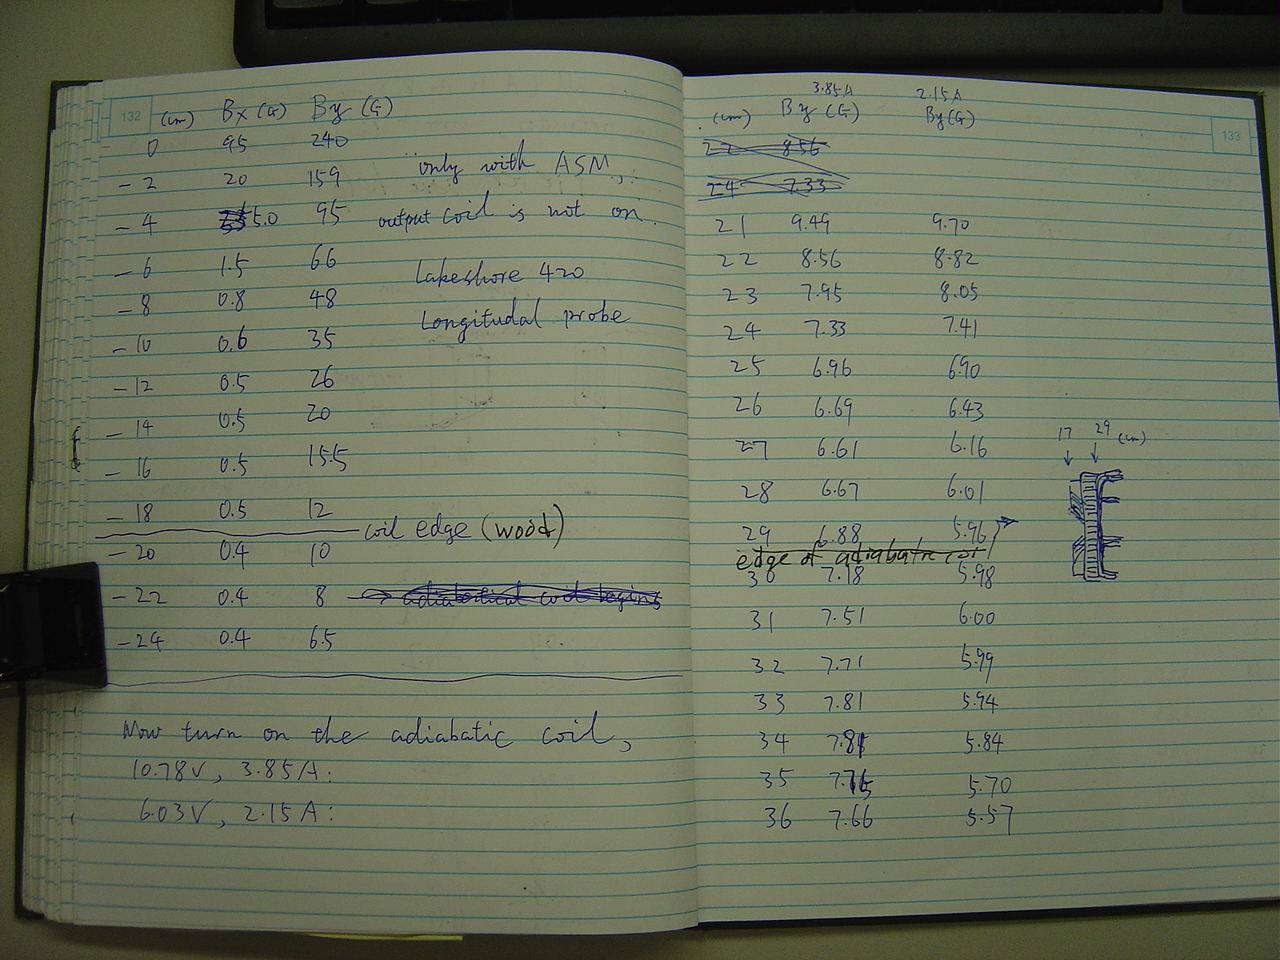 132
(cm) Bx (G) By (G)
0 95 240
-2 20 159
only with ASM,
-4 5.0 95
output coil is not on.
-6 1.5 66
Lakeshore 420
-8 0.8 48
Longitudal probe
-10 0.6 35
-12 0.5 26
-14 0.5 20
-16 0.5 15.5
-18 0.5 12
coil edge (wood)
-20 0.4 10
-22 0.4 8 → adiabatical coil begins
-24 0.4 6.5
Now turn on the adiabatic coil,
10.78V, 3.85A:
6.03V, 2.15A:
133
3.85A 2.15A
(cm) By (G) By (G)
22 8.56
24 7.33
21 9.49 9.70
22 8.56 8.82
23 7.95 8.05
24 7.33 7.41
25 6.96 6.90
26 6.69 6.43
27 6.61 6.16
28 6.67 6.01
29 6.88 5.96
edge of adiabatic coil
30 7.18 5.98
31 7.51 6.00
32 7.71 5.99
33 7.81 5.94
34 7.81 5.84
35 7.75 5.70
36 7.66 5.57
17 29 (cm)